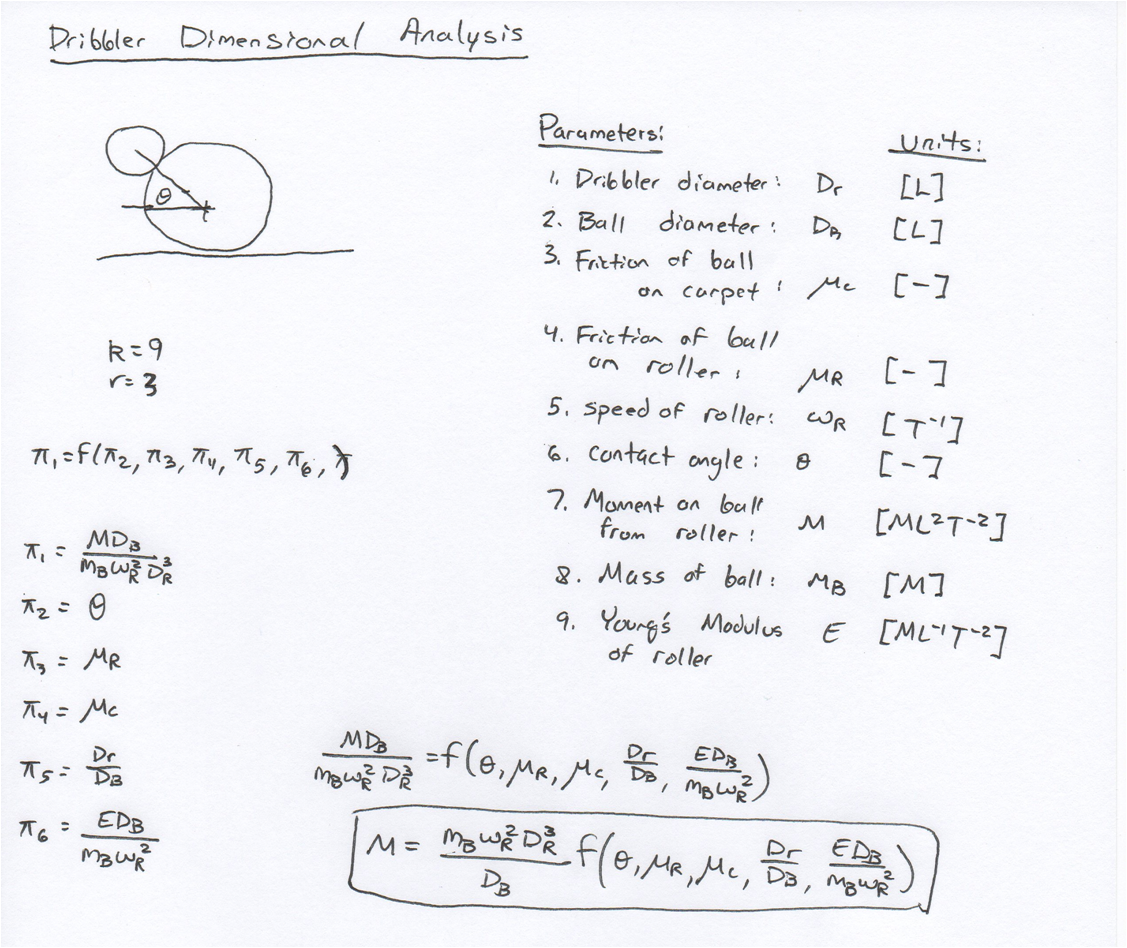 Dribbler Dimensional Analysis
θ
k=9
r=3
π₁=f(π₂, π₃, π₄, π₅, π₆, )
π₁ = MD_B / m_B ω_R² D_R³
π₂ = θ
π₃ = μ_R
π₄ = μ_c
π₅ = D_r / D_B
π₆ = ED_B / m_B ω_R²
Parameters: units:
1. Dribbler diameter: D_r [L]
2. Ball diameter: D_B [L]
3. Friction of ball
on carpet: μ_c [-]
4. Friction of ball
on roller: μ_R [-]
5. speed of roller: ω_R [T⁻¹]
6. contact angle: θ [-]
7. Moment on ball
from roller: M [ML²T⁻²]
8. Mass of ball: M_B [M]
9. Young's Modulus E [ML⁻¹T⁻²]
of roller
MD_B / m_B ω_R² D_R³ = f(θ, μ_R, μ_c, D_r / D_B, ED_B / m_B ω_R²)
M = m_B ω_R² D_R³ / D_B f(θ, μ_R, μ_c, D_r / D_B, ED_B / m_B ω_R²)